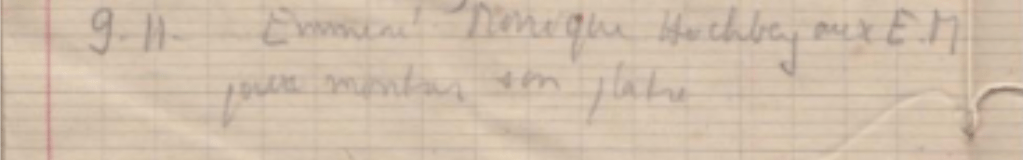 9. 11. Emmené Monique Hochbey aux E.M
pour montrer son plâtre